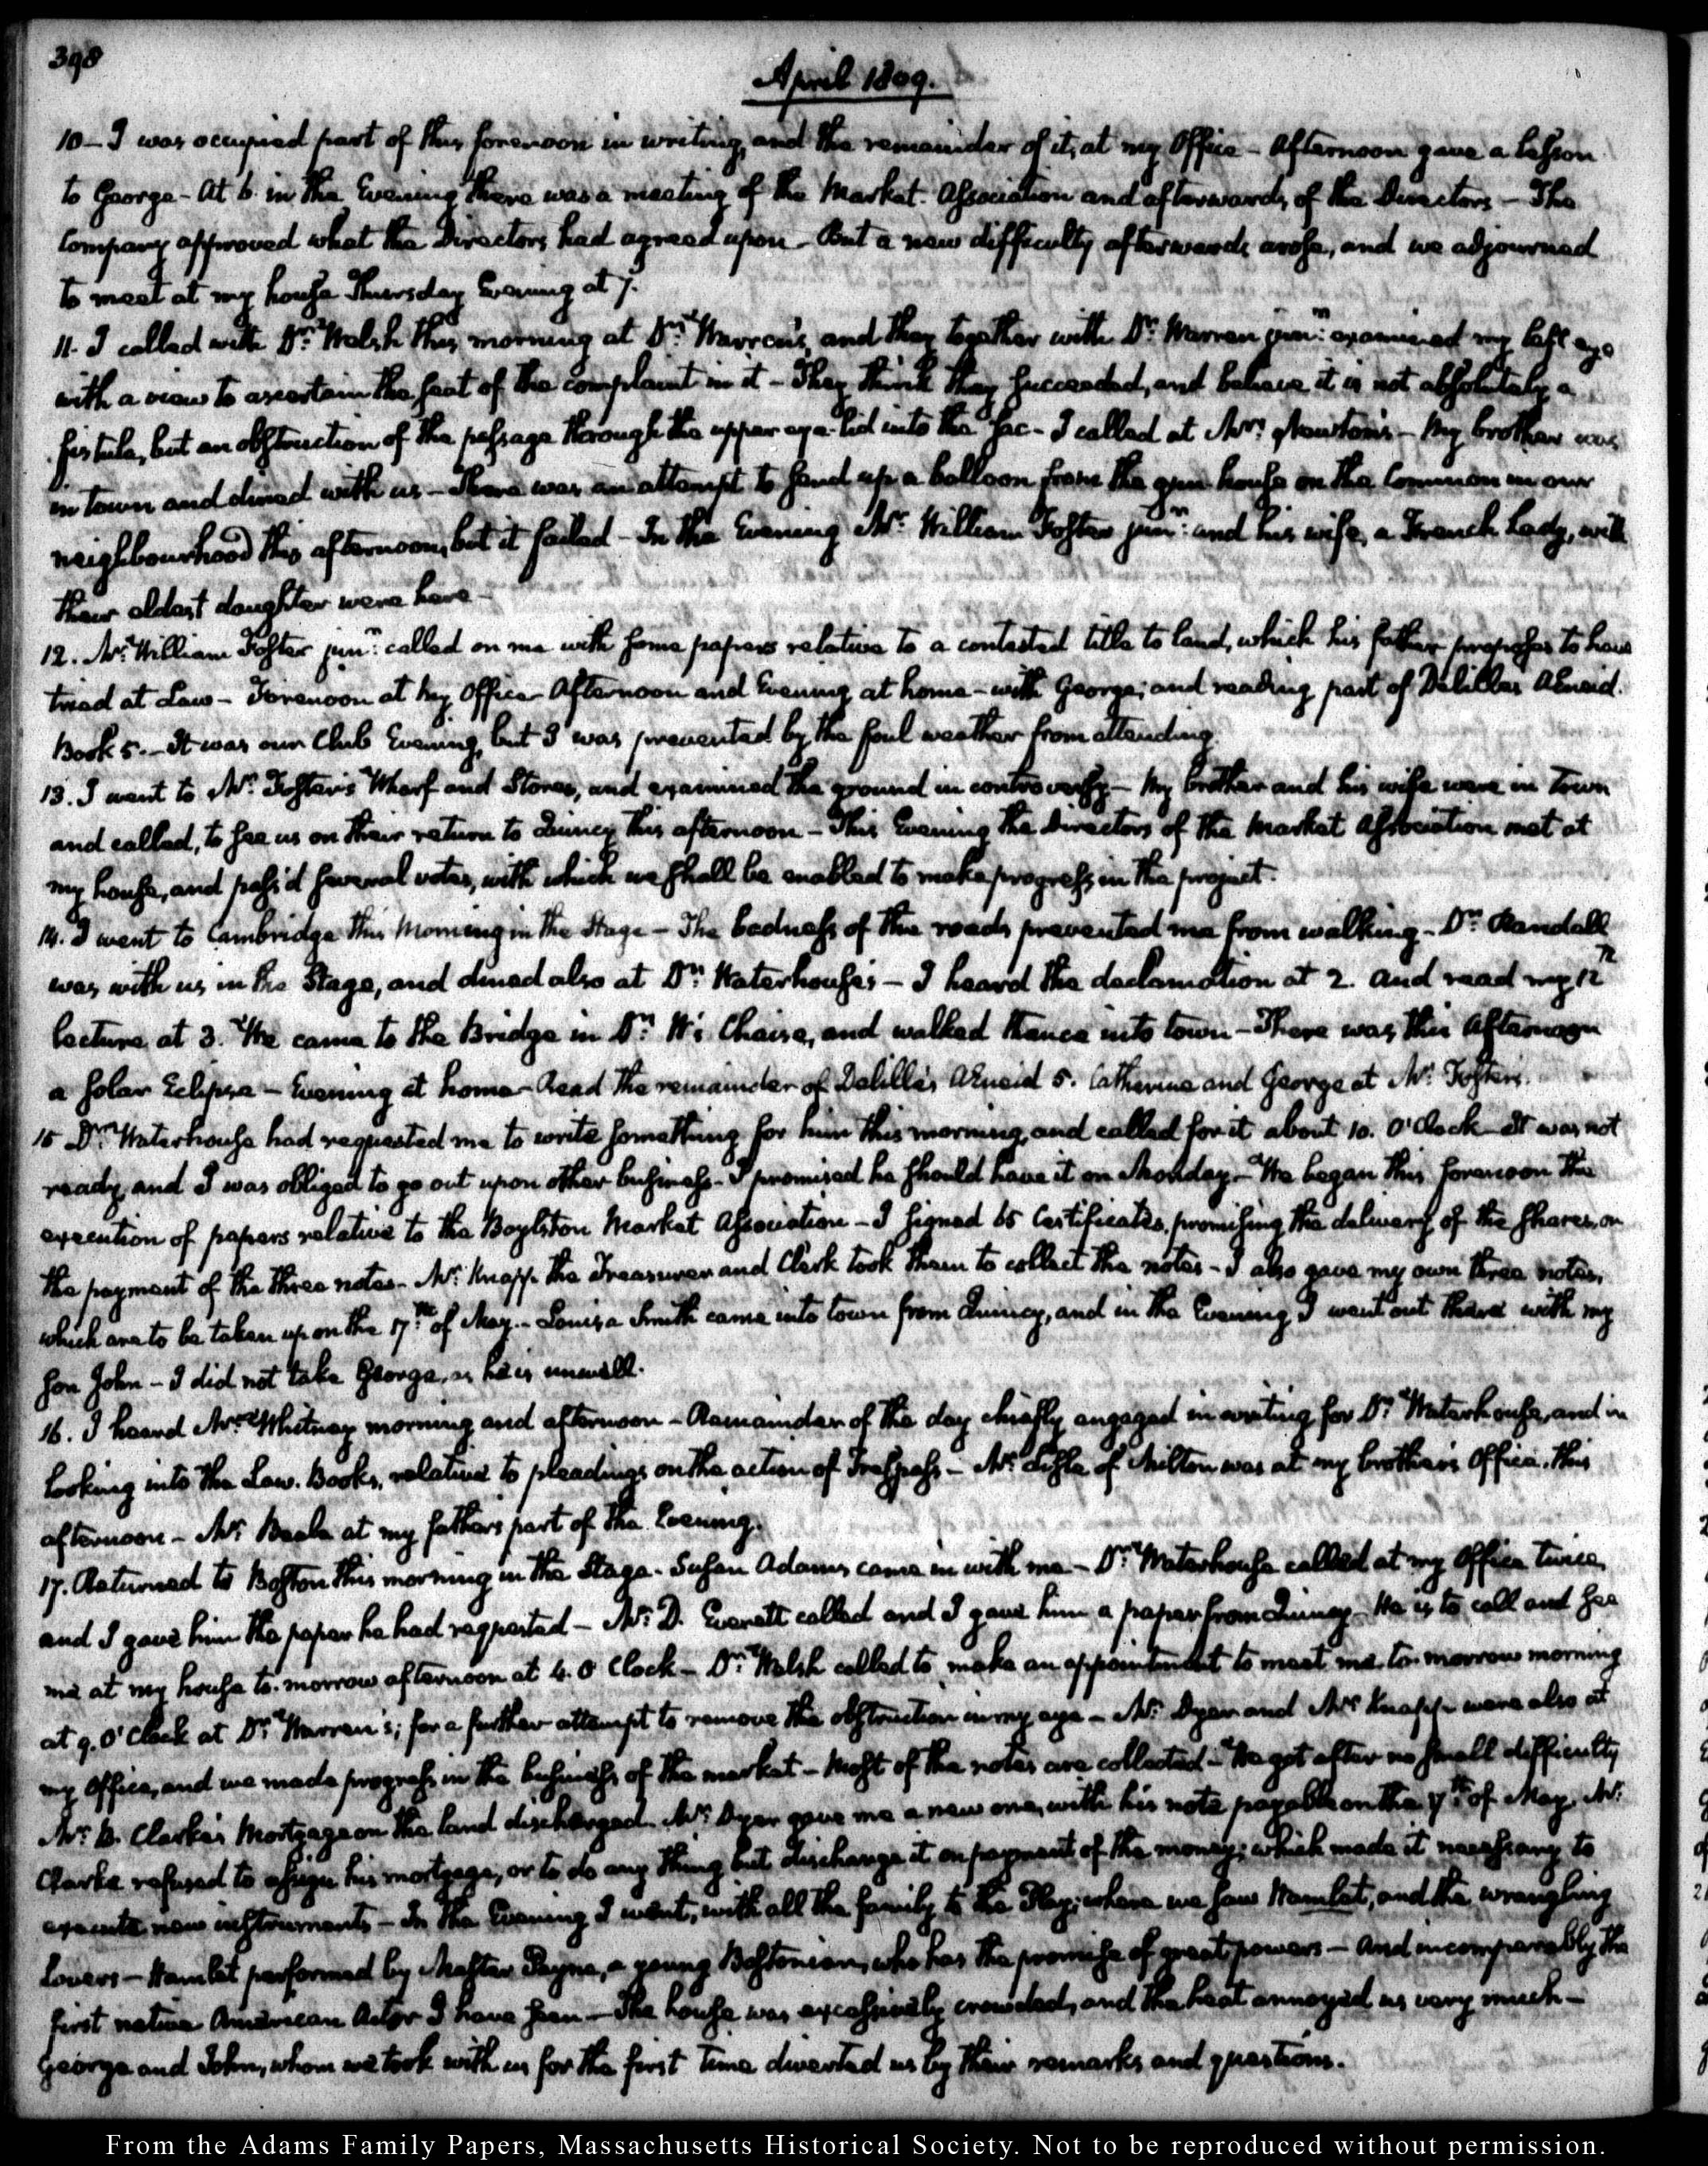 398
April 1809.
10 – I was occupied part of this forenoon in writing, and the remainder of it, at my Office – Afternoon gave a lesson
to George – At 6 in the Evening there was a meeting of the Market Association and afterwards, of the Directors – The
Company approved what the Directors had agreed upon – But a new difficulty afterwards arose, and we adjourned
to meet at my house Thursday Evening at 7.
11. I called with Dr. Welsh this morning at Dr. Warren's, and they together with Dr. Warren junr. examined my left eye
with a view to ascertain the seat of the complaint in it – They think they succeeded, and believe it is not absolutely a
fistula, but an obstruction of the passage through the upper eye-lid into the sac – I called at Mrs. Newton's – My brother was
in town and dined with us – There was an attempt to send up a balloon from the gun house on the Common in our
neighbourhood this afternoon, but it failed – In the Evening Mr. William Foster junr. and his wife, a French Lady, with
their eldest daughter were here –
12. Mr. William Foster junr. called on me with some papers relative to a contested title to land, which his father proposes to have
tried at Law – Forenoon at my Office – Afternoon and Evening at home – with George; and reading part of Delille's Æneid.
Book 5. – It was our Club Evening, but I was prevented by the foul weather from attending.
13. I went to Mr. Foster's Wharf and Stores, and examined the ground in controversy – My brother and his wife were in town
and called, to see us on their return to Quincy this afternoon – This Evening the Directors of the Market Association met at
my house, and pass'd several votes, with which we shall be enabled to make progress in the project.
14. I went to Cambridge this Morning in the Stage – The badness of the roads prevented me from walking – Dr. Randall
was with us in the Stage, and dined also at Dr. Waterhouse's – I heard the declamation at 2. and read my 12th
lecture at 3. We came to the Bridge in Dr. W's Chaise, and walked thence into town – There was this Afternoon
a solar Eclipse – Evening at home – Read the remainder of Delille's Æneid 5. Catherine and George at Mr. Foster's.
15 Dr. Waterhouse had requested me to write something for him this morning, and called for it about 10. O'Clock – It was not
ready, and I was obliged to go out upon other business – I promised he should have it on Monday – We began this forenoon the
execution of papers relative to the Boylston Market Association – I signed 65 Certificates, promising the delivery of the shares, on
the payment of the three notes – Mr. Knapp the Treasurer and Clerk took them to collect the notes – I also gave my own three notes,
which are to be taken up on the 17th of May – Louisa Smith came into town from Quincy, and in the Evening I went out there with my
son John – I did not take George, as he is unwell.
16. I heard Mr. Whitney morning and afternoon – Remainder of the day chiefly engaged in writing for Dr. Waterhouse, and in
looking into the Law-Books, relative to pleadings on the action of Trespass – Mr. of Milton was at my brother's Office, this
afternoon – Mr. Beale at my father's part of the Evening.
17. Returned to Boston this morning in the Stage – Susan Adams came in with me – Dr. Waterhouse called at my Office twice,
and I gave him the paper he had requested – Mr. D. Everett called and I gave him a paper from Quincy – He is to call and see
me at my house to-morrow afternoon at 4. O'Clock – Dr. Welsh called to make an appointment to meet me to-morrow morning
at 9. O'Clock at Dr. Warren's; for a further attempt to remove the obstruction in my eye – Mr. Dyer and Mr. Knapp were also at
my Office, and we made progress in the business of the market – Most of the notes are collected – We got after no small difficulty
Mr. B. Clarke's Mortgage on the land discharged. Mr. Dyer gave me a new one, with his note payable on the 7th of May. Mr.
Clarke refused to assign his mortgage, or to do any thing but discharge it on payment of the money; which made it necessary to
execute new instruments – In the Evening I went, with all the family to the Play; where we saw Hamlet, and the wrangling
Lovers – Hamlet performed by Master Payne, a young Bostonian, who has the promise of great powers – And incomparably the
first native American Actor I have seen – The house was excessively crowded, and the heat annoyed us very much –
George and John, whom we took with us for the first time diverted us by their remarks and questions.
From the Adams Family Papers, Massachusetts Historical Society. Not to be reproduced without permission.